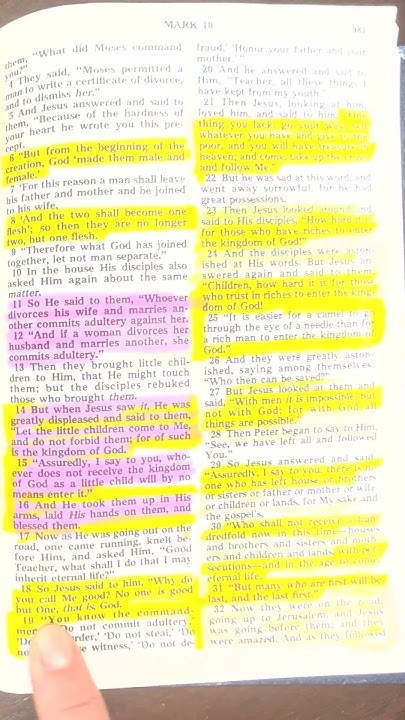 MARK 10
381
them, "What did Moses command
you?"
4 They said, "Moses permitted a
man to write a certificate of divorce,
and to dismiss her."
5 And Jesus answered and said to
them, "Because of the hardness of
your heart he wrote you this pre-
cept.
6 "But from the beginning of the
creation, God 'made them male and
female.'
7 'For this reason a man shall leave
his father and mother and be joined
to his wife,
8 'And the two shall become one
flesh'; so then they are no longer
two, but one flesh.
9 "Therefore what God has joined
together, let not man separate."
10 In the house His disciples also
asked Him again about the same
matter.
11 So He said to them, "Whoever
divorces his wife and marries an-
other commits adultery against her.
12 "And if a woman divorces her
husband and marries another, she
commits adultery."
13 Then they brought little chil-
dren to Him, that He might touch
them; but the disciples rebuked
those who brought them.
14 But when Jesus saw it, He was
greatly displeased and said to them,
"Let the little children come to Me,
and do not forbid them; for of such
is the kingdom of God.
15 "Assuredly, I say to you, who-
ever does not receive the kingdom
of God as a little child will by no
means enter it."
16 And He took them up in His
arms, laid His hands on them, and
blessed them.
17 Now as He was going out on the
road, one came running, knelt be-
fore Him, and asked Him, "Good
Teacher, what shall I do that I may
inherit eternal life?"
18 So Jesus said to him, "Why do
you call Me good? No one is good
but One, that is, God.
19 "You know the command-
'Do not commit adultery,'
'Do not steal,' 'Do
witness,' 'Do not de-
fraud,' 'Honor your father and your
mother.'"
20 And he answered and said to
Him, "Teacher, all these things I
have kept from my youth."
21 Then Jesus, looking at him,
loved him, and said to him, "One
thing you lack: go your way, sell
whatever you have and give to the
poor, and you will have treasure in
heaven; and come, take up the cross
and follow Me."
22 But he was sad at this word, and
went away sorrowful, for he had
great possessions.
23 Then Jesus looked around and
said to His disciples, "How hard it is
for those who have riches to enter
the kingdom of God!"
24 And the disciples were aston-
ished at His words. But Jesus an-
swered again and said to them,
"Children, how hard it is for those
who trust in riches to enter the king-
dom of God!
25 "It is easier for a camel to go
through the eye of a needle than for
a rich man to enter the kingdom of
God."
26 And they were greatly aston-
ished, saying among themselves,
"Who then can be saved?"
27 But Jesus looked at them and
said, "With men it is impossible, but
not with God; for with God all
things are possible."
28 Then Peter began to say to Him,
"See, we have left all and followed
You."
29 So Jesus answered and said,
"Assuredly, I say to you, there is no
one who has left house or brothers
or sisters or father or mother or wife
or children or lands, for My sake and
the gospel's,
30 "Who shall not receive a hun-
dredfold now in this time—houses
and brothers and sisters and moth-
ers and children and lands, with per-
secutions—and in the age to come,
eternal life.
31 "But many who are first will be
last, and the last first."
32 Now they were on the road,
going up to Jerusalem, and Jesus
was going before them; and they
were amazed. And as they followed